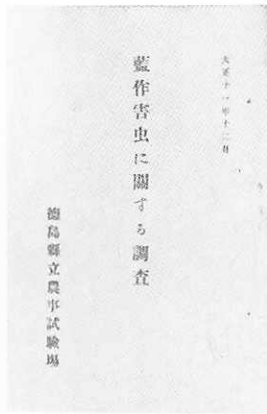 大正十一年十二月
藍作害虫に關する調査
徳島縣立農事試驗場